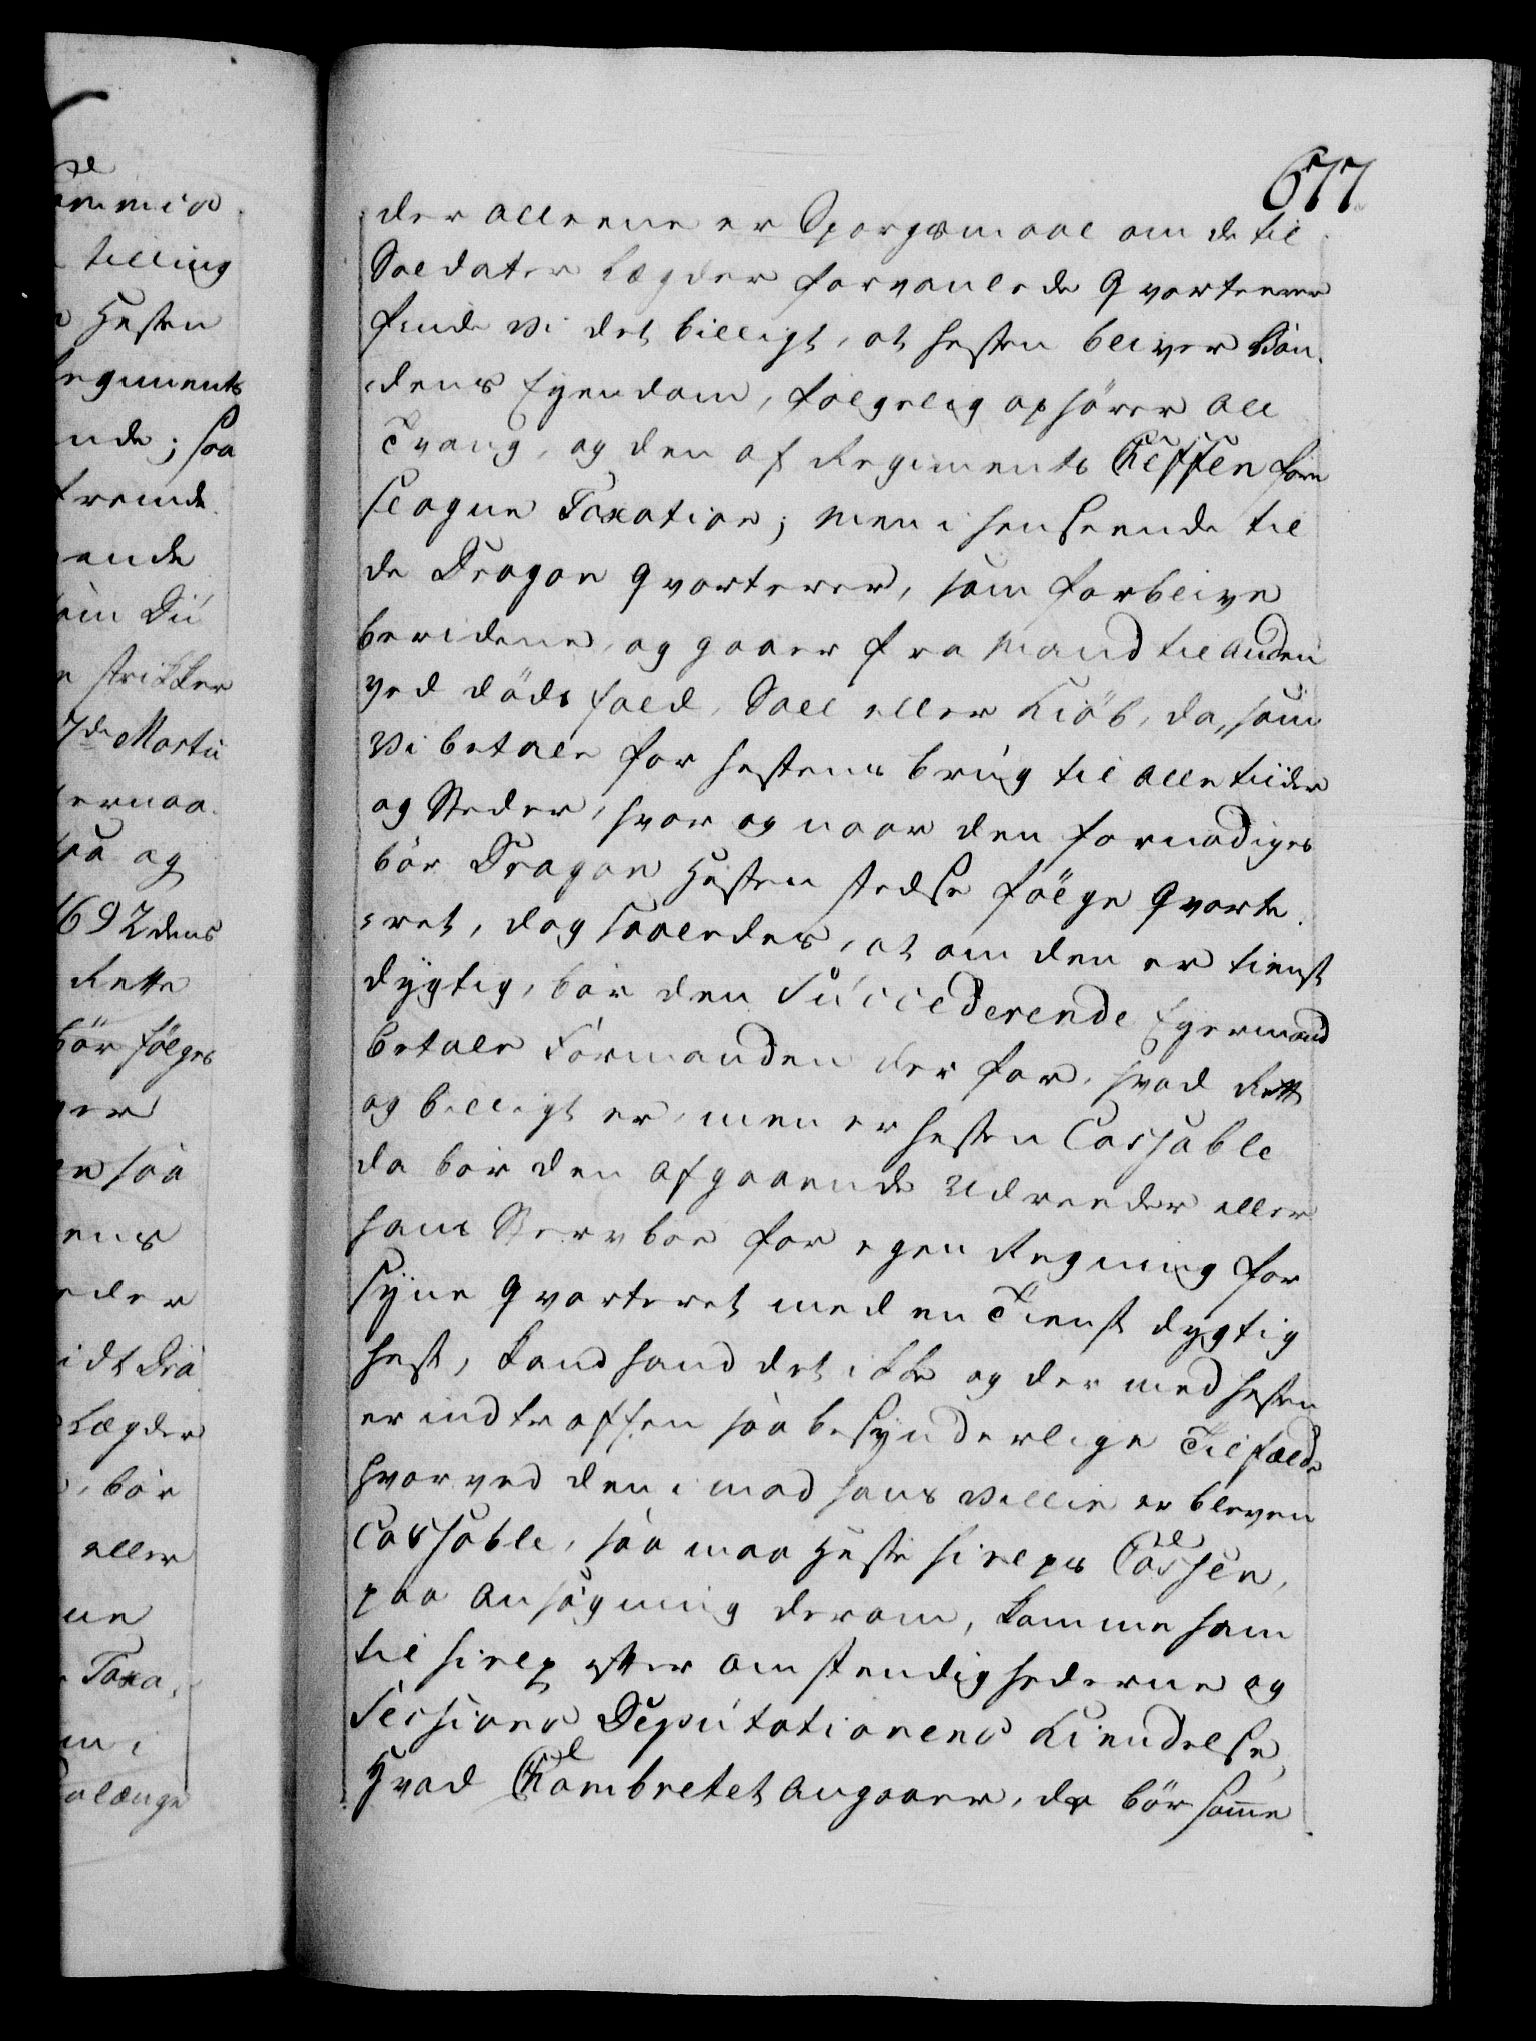 677
der alleene er Spørgsmaal om de til
Soldater Lægder forvanlede Qvarteerer
finde Vi det billigt, at Hesten bliver Bøn-
-dens Eyendom, følgelig ophører all
Tvang, og den af Regiments Cheffen fore
slagne Taxation; men i henseende til
de Dragon Qvarterer, som forblive
beridene, og gaaer fra Mand til Anden
ved Døds fald, Sall eller Kiøb, da, som
Vi betale for Hestens brug til alle tiider
og Steder, hvor og naar den fornødiges
bør Dragon Hesten stedse følge Qvarte-
-ret, dog saaledes, at om den er tienst
dygtig, bør den Succederende Eyermand
betale Formanden der for, hvad Rett
og billigt er, men er Hesten Cassable
da bør den afgaaende Udreeder eller
hans Stervboe for egen Regning for
syne Qvarteret med en Tienst dygtig
Hest, kand hand det ikke og der med Hesten
er indtroffen saa besynderlige Tilfælde
hvorved den imod hans Villie er bleven
Cassable, saa maa Heste hielps Cassen,
paa Ansøgning derom, komme ham
til hielp efter Omstendighederne og
Sessions Deputationens Kiendelse,
Hvad Chambretet angaaer, da bør samme